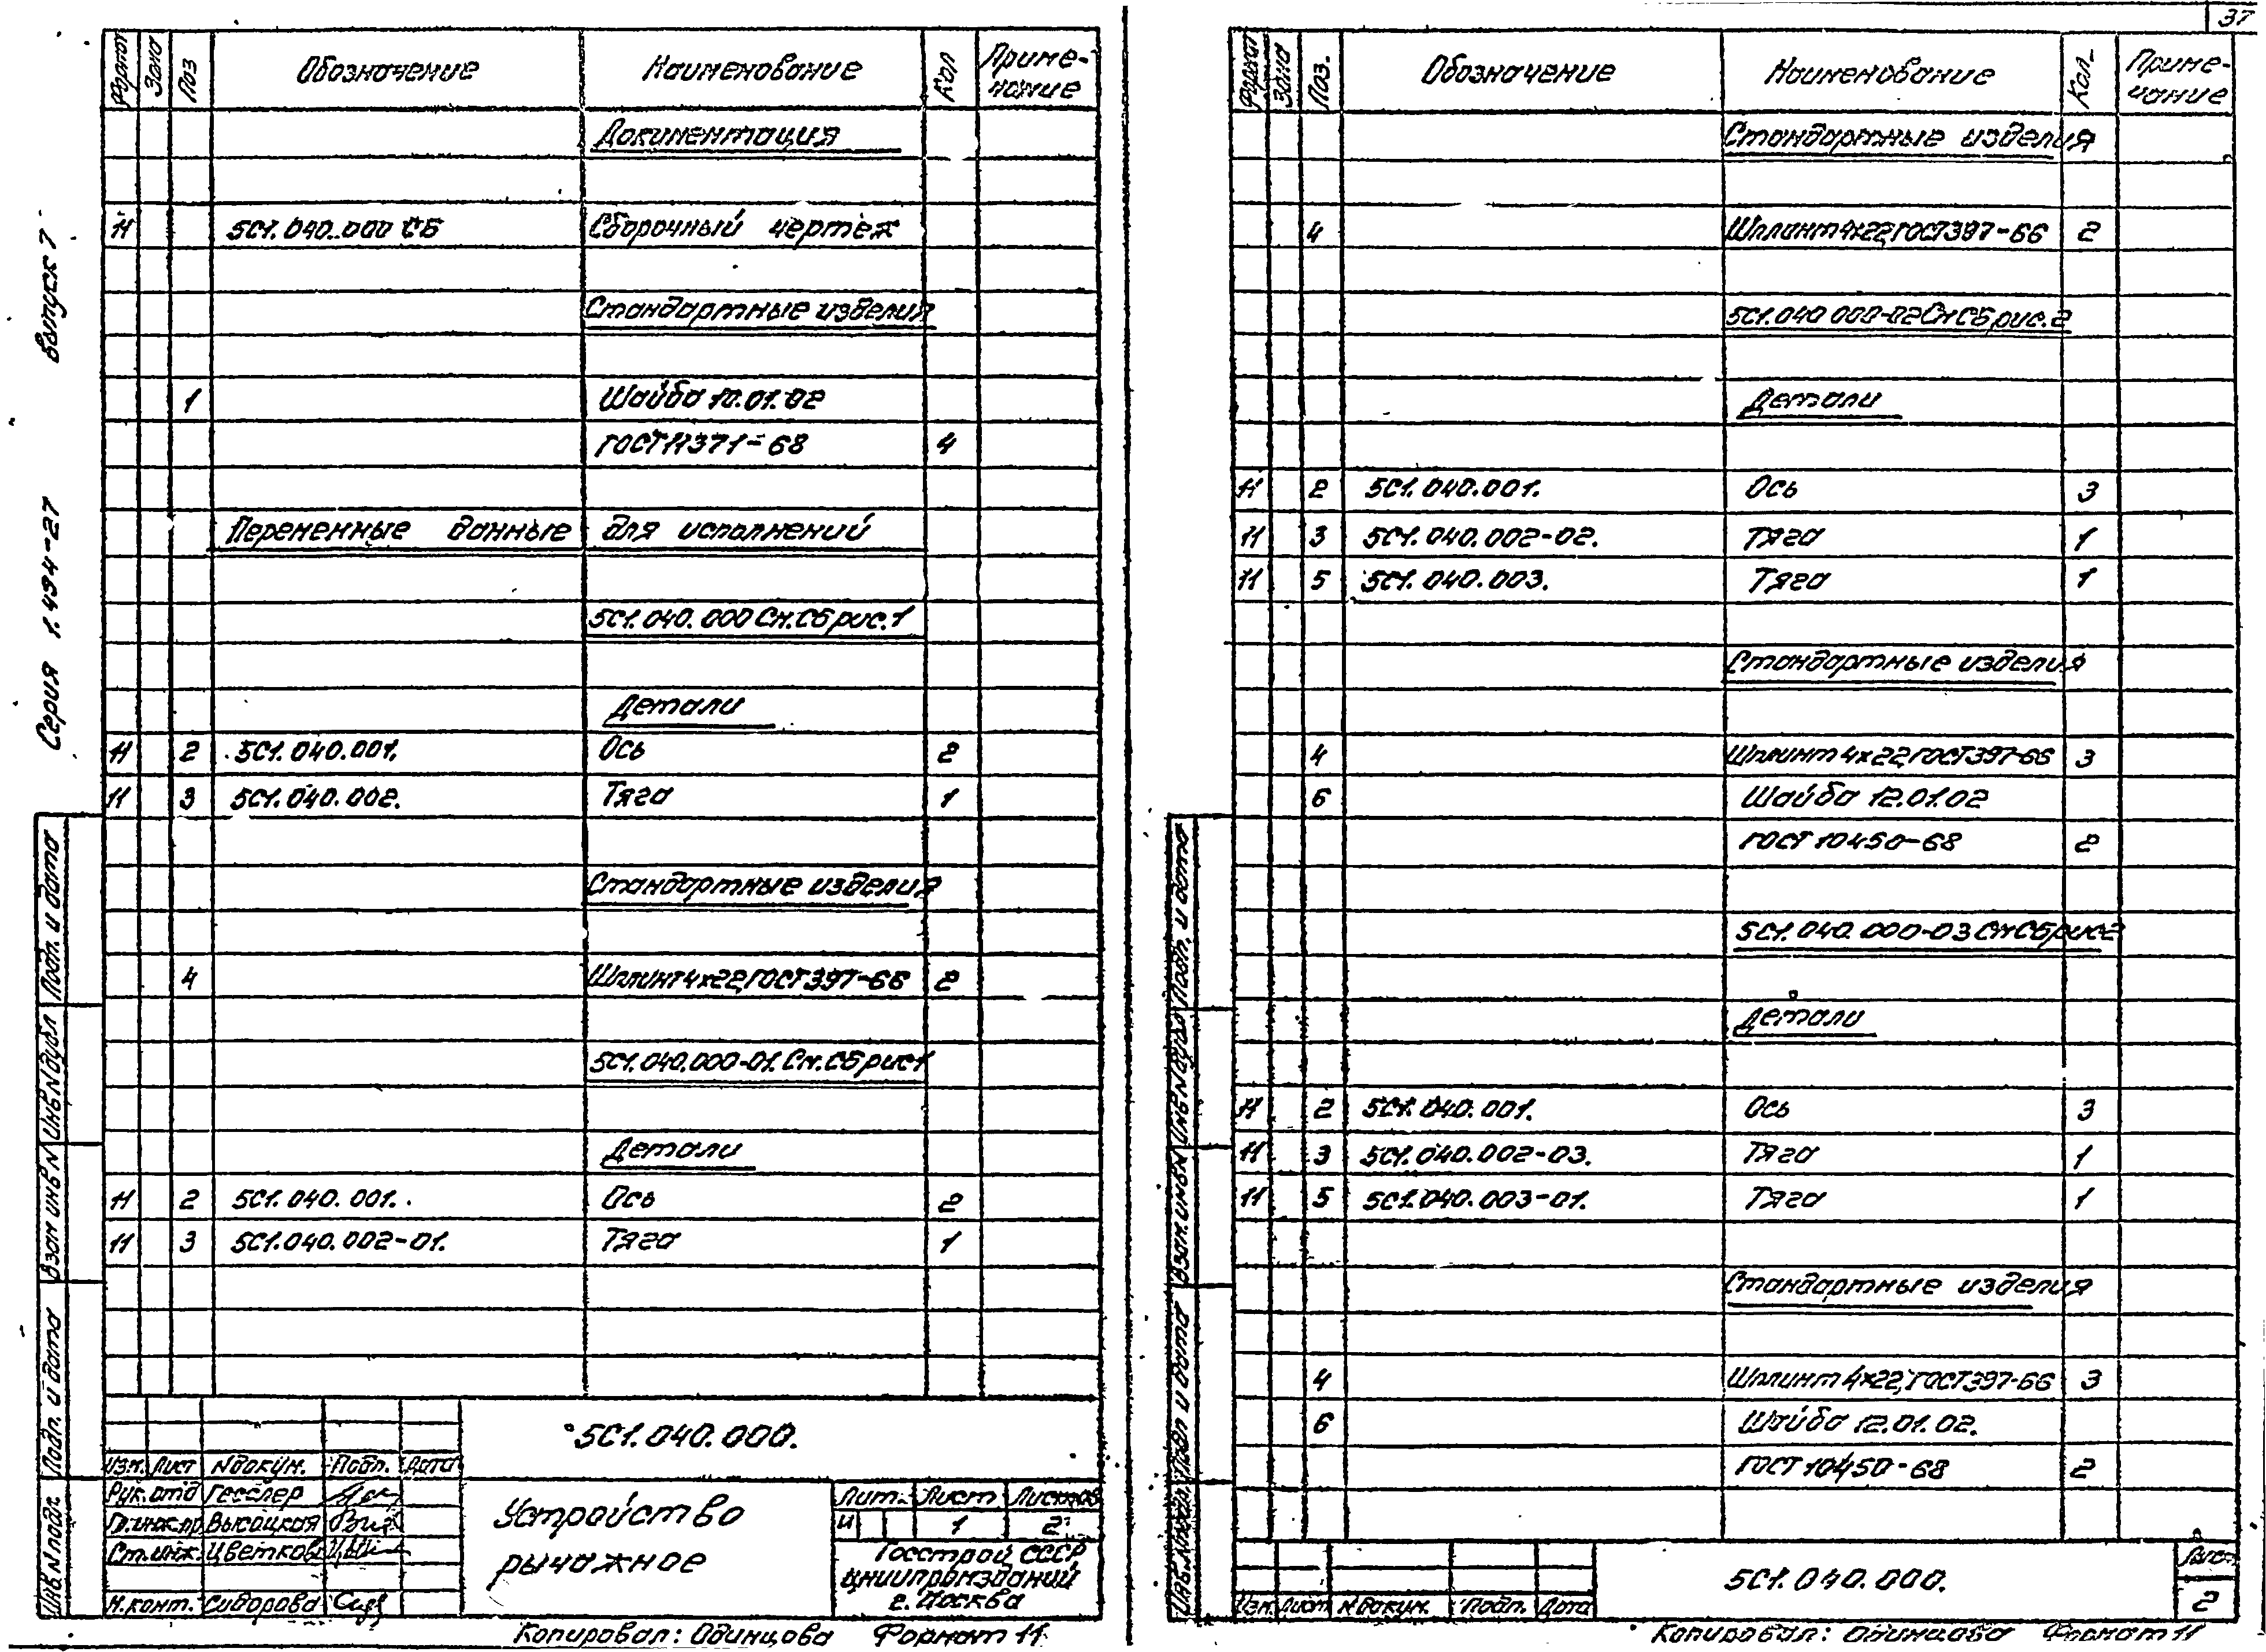 Серия 1.494-27 Выпуск 7
Формат Зона Поз Обозначение Наименование Кол Приме-
чание
Документация
11 5С1.040.000 СБ Сборочный чертеж
Стандартные изделия
1 Шайба 10.01.02
ГОСТ 11371-68 4
Переменные данные для исполнений
5С1.040.000 См.СБ рис.1
Детали
11 2 5С1.040.001. Ось 2
11 3 5С1.040.002. Тяга 1
Стандартные изделия
4 Шплинт 4х22,ГОСТ397-66 2
5С1.040.000-01. См.СБ рис1
Детали
11 2 5С1.040.001. Ось 2
11 3 5С1.040.002-01. Тяга 1
Подп. и дата
Инв N дубл
Взам инв N
Подп. и дата
Инв.N подл.
5С1.040.000.
Изм. Лист N докум. Подп. Дата
Рук.отд Гесслер
Гл.инж.пр Высоцкая
Ст.инж. Цветков
Н.конт. Сидорова
Устройство
рычажное
Лит. Лист Листов
И 1 2
Госстрой СССР
ЦНИИпромзданий
г.Москва
Копировал: Одинцова Формат 11
37
Формат Зона Поз. Обозначение Наименование Кол. Приме-
чание
Стандартные изделия
4 Шплинт 4х22,ГОСТ397-66 2
5С1.040 000-02 См СБ рис.2
Детали
11 2 5С1.040.001. Ось 3
11 3 5С1.040.002-02. Тяга 1
11 5 5С1.040.003. Тяга 1
Стандартные изделия
4 Шплинт 4х22,ГОСТ397-66 3
6 Шайба 12.01.02
ГОСТ 10450-68 2
5С1.040.000-03 См СБ рис2
Детали
11 2 5С1.040.001. Ось 3
11 3 5С1.040.002-03. Тяга 1
11 5 5С1.040.003-01. Тяга 1
Стандартные изделия
4 Шплинт 4х22,ГОСТ397-66 3
6 Шайба 12.01.02.
ГОСТ 10450-68 2
Подп. и дата
Инв N дубл
Взам.инв N
Подп и дата
Инв.N подл.
Изм. Лист N докум. Подп. Дата
5С1.040.000.
Лист
2
Копировал: Одинцова Формат 11